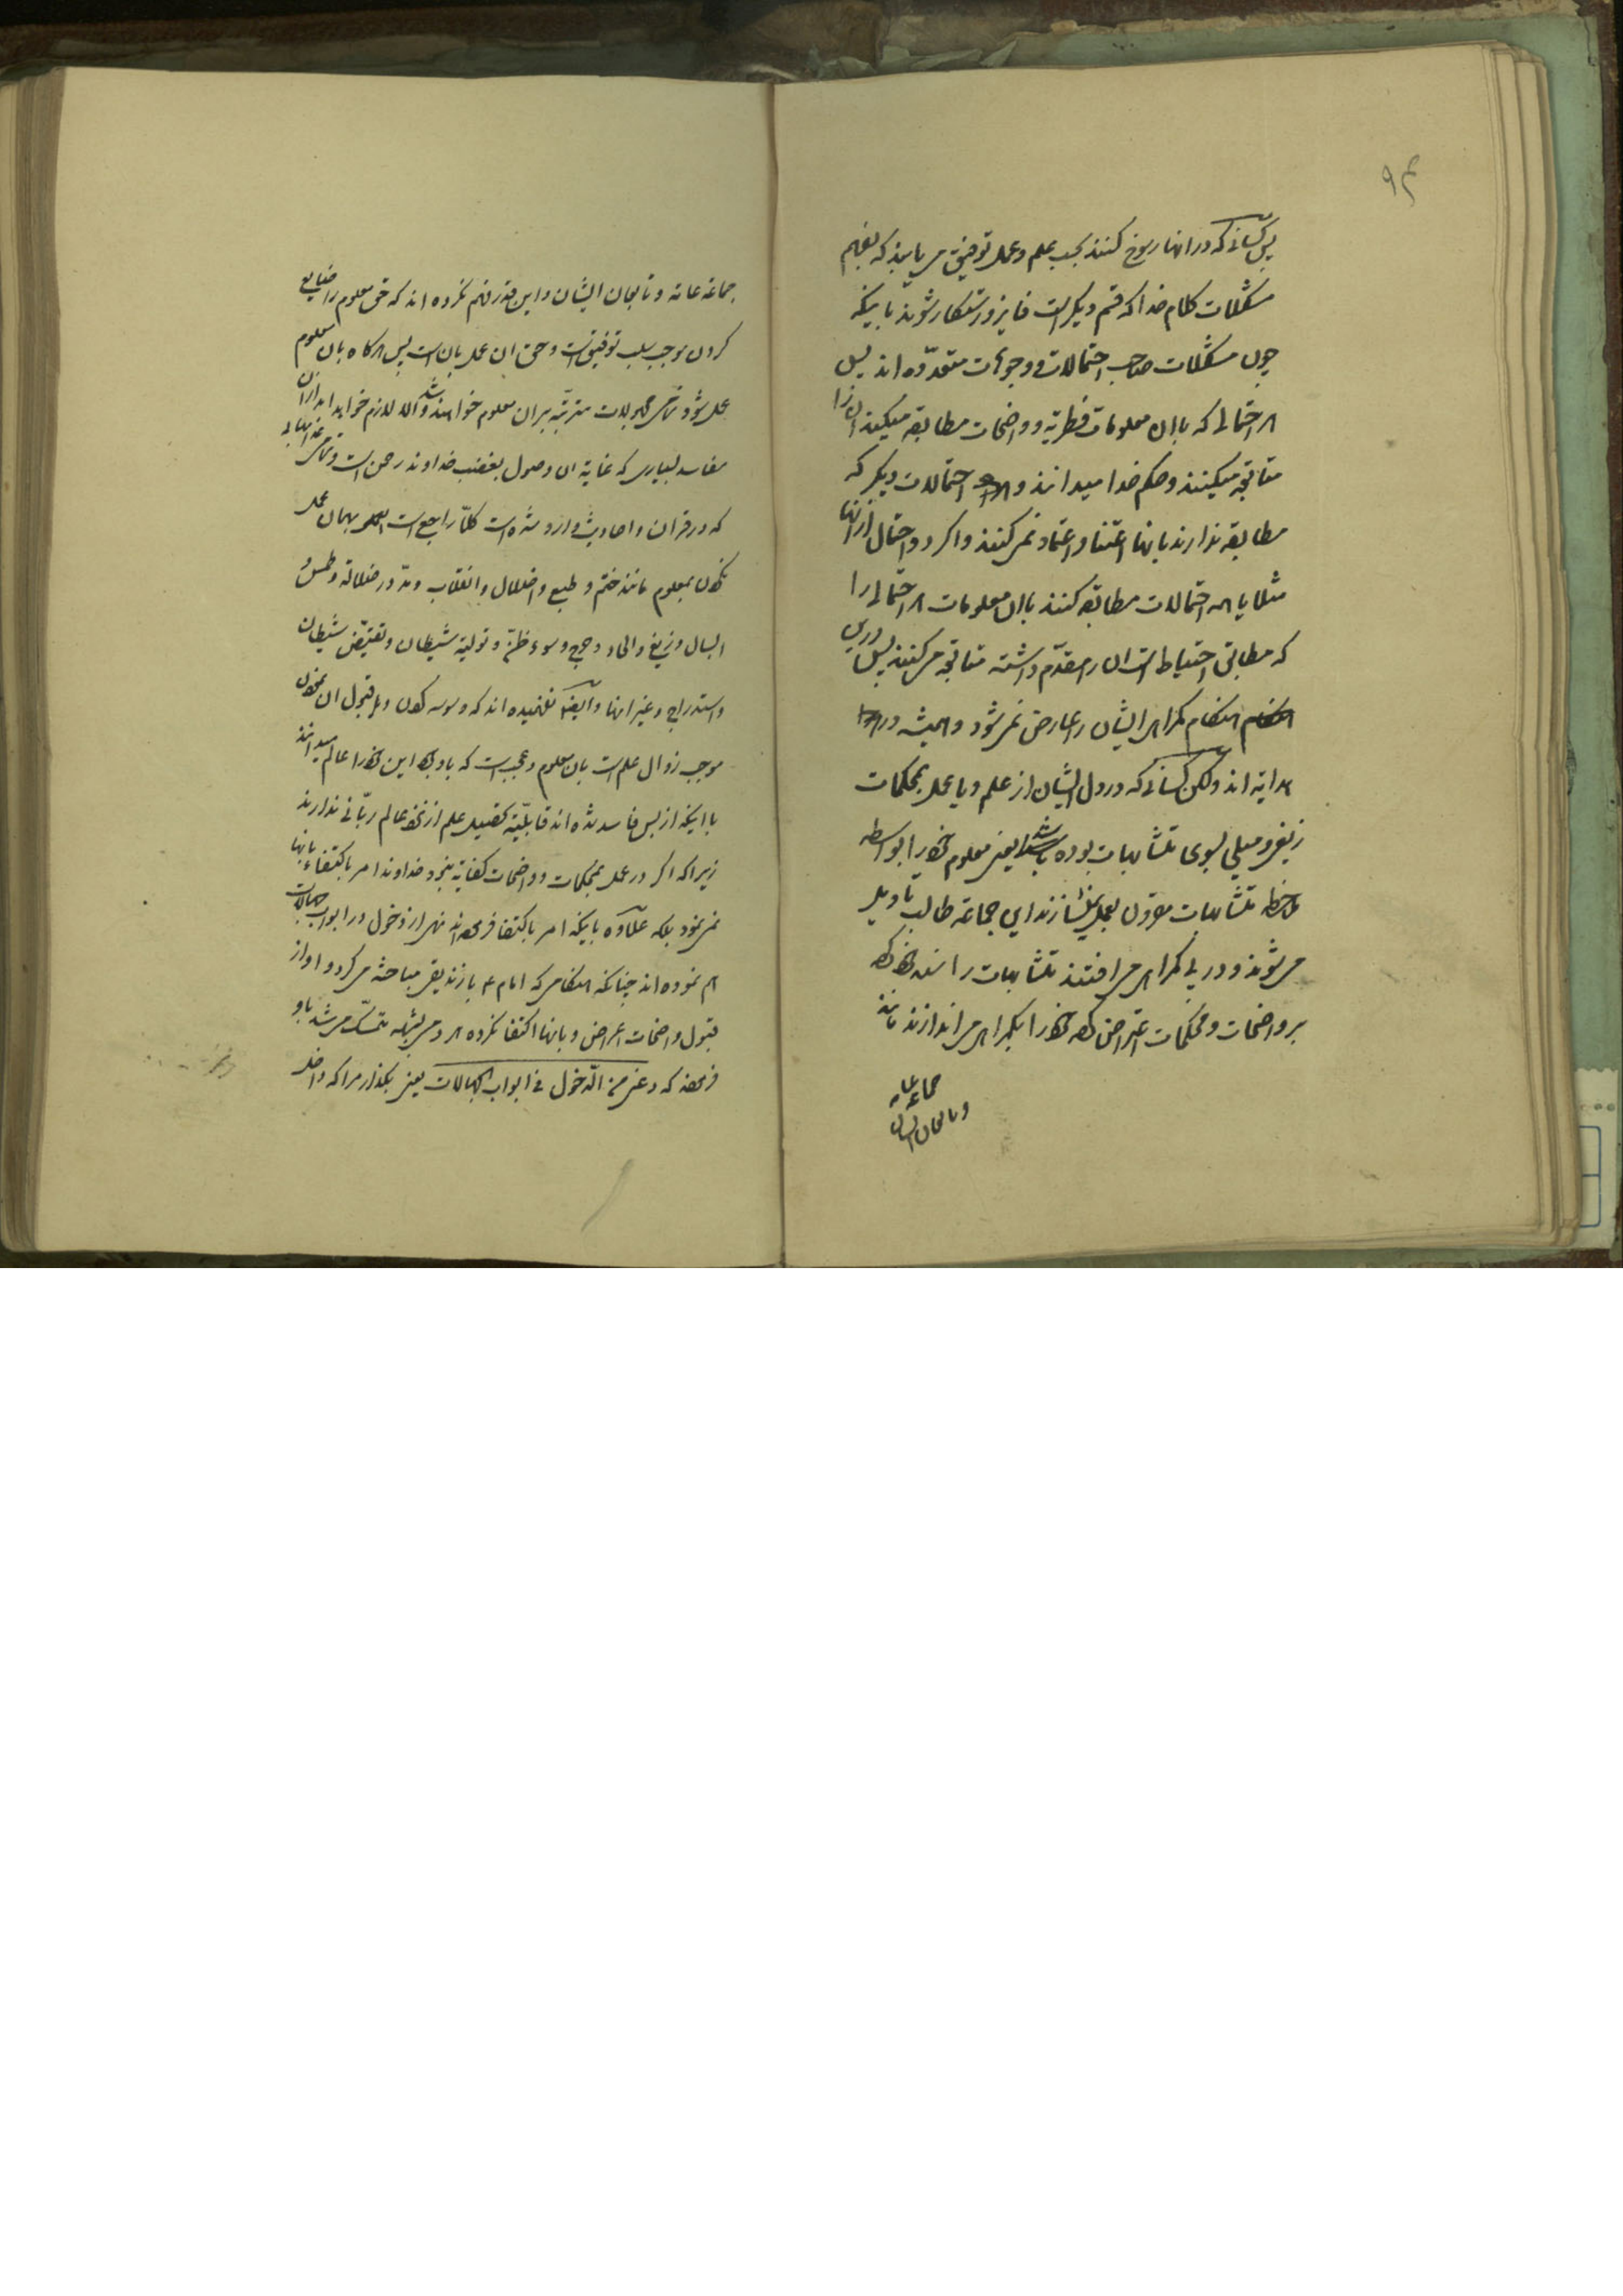 ۹۴
پس کسانیکه در انها رسوخ کنند بحسب علم و عمل توفیق می یابند که بفهم
مشکلات کلام خدا که قسم دیگر است فایز و رستکار شوند باینکه
چون مشکلات صاحب احتمالات و وجوهات متعدّده اند پس
هر احتمالی که باان معلومات فطریه و واضحات مطابقه میکند ان را
متابعه میکنند و حکم خدا میدانند و احتمالات دیگر که
مطابقه ندارند بانها اعتنا و اعتماد نمیکنند و اکر دو احتمال از انها
مثلا یا همه احتمالات مطابقه کنند باان معلومات هر احتمالی را
که مطابق احتیاط است ان را مقدّم داشته متابعه می کنند پس
هنکام کمراهی ایشان را عارض نمی شود و همیشه در
هدایه اند ولکن کسانیکه در دل ایشان از علم و یا عمل بمحکمات
زیغ و میلی بسوی متشابهات بوده باشد یعنی معلوم خود را بواسطه
ملاحظه متشابهات مقرون بعمل نسازند این جماعة طالب تاویل
می شوند و در پی کمراهی می افتند متشابهات را سند خود کرده
بر واضحات و محکمات اعتراض کرده خود را بکمراهی می اندازند مانند
جماعة عامه
و تابعان ایشان
جماعة عامه و تابعان ایشان و این قدر فهم نکرده اند که حق معلوم را ضایع
کردن موجب سلب توفیق است و حق ان عمل بان است پس هرکاه بان معلوم
عمل شود تمامی مجهولات مترتبه بران معلوم خواهند شد و الا لازم خواهد امد از ان
مفاسد بسیاری که غایة ان وصول بغضب خداوند رحمن است و تمامی عذابهایی
که در قران و احادیث وارد شده است کلاً راجع است بهمان عمل
نکردن بمعلوم مانند ختم و طبع و اضلال و انقلاب و مدّ در ضلالة و طمس و
ابسال و زیغ و الحاد و حجب و سوء ظنّ و تولیة شیطان و تقیّض شیطان
و استدراج و غیر انها و ایضا نفهمیده اند که وسوسه کردن و قبول ان نمودن
موجب زوال علم است بان معلوم و عجب است که باوجود این خود را عالم میدانند
با اینکه از بس فاسد شده اند قابلیّة تحصیل علم از نزد عالم ربّانی ندارند
زیرا که اکر در عمل بمحکمات و واضحات کفایة نبود خداوند امر باکتفاء بانها
نمی نمود بلکه علاوه باینکه امر باکتفا فرموده اند نهی از دخول در ابواب جهالات
هم نموده اند چنانکه هنکامی که امام ع با زندیقی مباحثه می کرد و او از
قبول واضحات اعراض و بانها اکتفا نکرده هر دمی بشبهه متمسّک می شد باو
فرمودند که دعنی من الدّخول فی ابواب الجهالات یعنی بکذار مرا که داخل